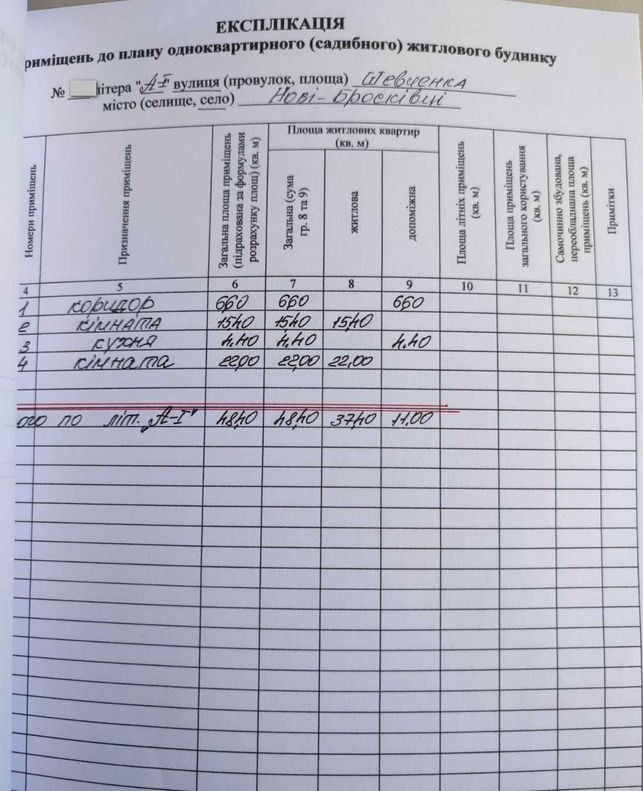 ЕКСПЛІКАЦІЯ
риміщень до плану одноквартирного (садибного) житлового будинку
№ літера "А-І" вулиця (провулок, площа) Шевченка
місто (селище, село) Нові-Бросківці
Номери приміщень
Призначення приміщень
Загальна площа приміщень (підрахована за формулами розрахунку площ) (кв. м)
Площа житлових квартир (кв. м)
Загальна (сума гр. 8 та 9)
житлова
допоміжна
Площа літніх приміщень (кв. м)
Площа приміщень загального користування (кв. м)
Самочинно збудована, переобладнана площа приміщень (кв. м)
Примітки
4 5 6 7 8 9 10 11 12 13
1 коридор 6,60 6,60 6,60
2 кімната 15,40 15,40 15,40
3 кухня 4.40 4.40 4.40
4 кімната 22,00 22,00 22,00
ого по літ. "А-І" 48,40 48,40 37,40 11.00